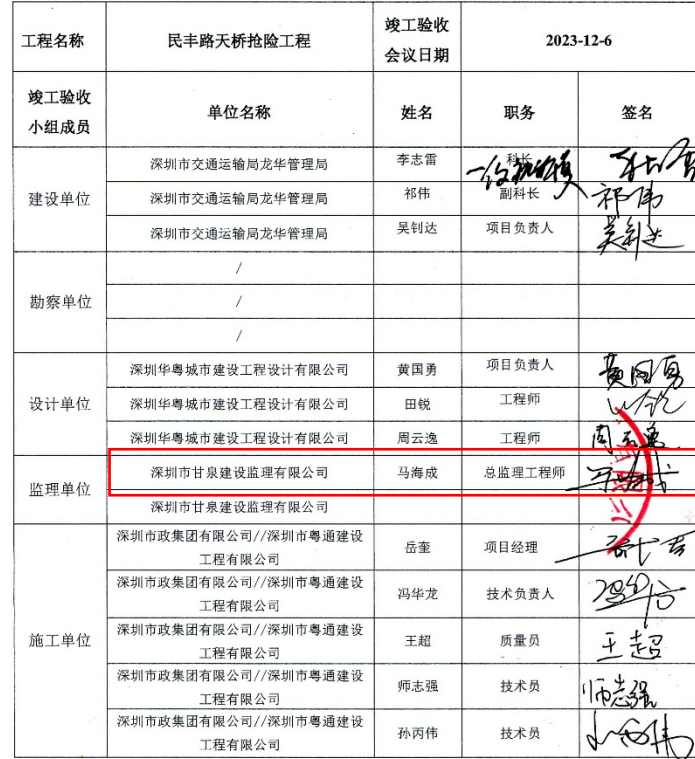 工程名称 民丰路天桥抢险工程 竣工验收会议日期 2023-12-6
竣工验收小组成员 单位名称 姓名 职务 签名
建设单位
深圳市交通运输局龙华管理局 李志雷 科长
深圳市交通运输局龙华管理局 祁伟 副科长 祁伟
深圳市交通运输局龙华管理局 吴钊达 项目负责人 吴钊达
勘察单位
/
/
/
设计单位
深圳华粤城市建设工程设计有限公司 黄国勇 项目负责人 黄国勇
深圳华粤城市建设工程设计有限公司 田锐 工程师
深圳华粤城市建设工程设计有限公司 周云逸 工程师 周云逸
监理单位
深圳市甘泉建设监理有限公司 马海成 总监理工程师
深圳市甘泉建设监理有限公司
施工单位
深圳市政集团有限公司//深圳市粤通建设
工程有限公司 岳奎 项目经理
深圳市政集团有限公司//深圳市粤通建设
工程有限公司 冯华龙 技术负责人
深圳市政集团有限公司//深圳市粤通建设
工程有限公司 王超 质量员 王超
深圳市政集团有限公司//深圳市粤通建设
工程有限公司 师志强 技术员 师志强
深圳市政集团有限公司//深圳市粤通建设
工程有限公司 孙丙伟 技术员